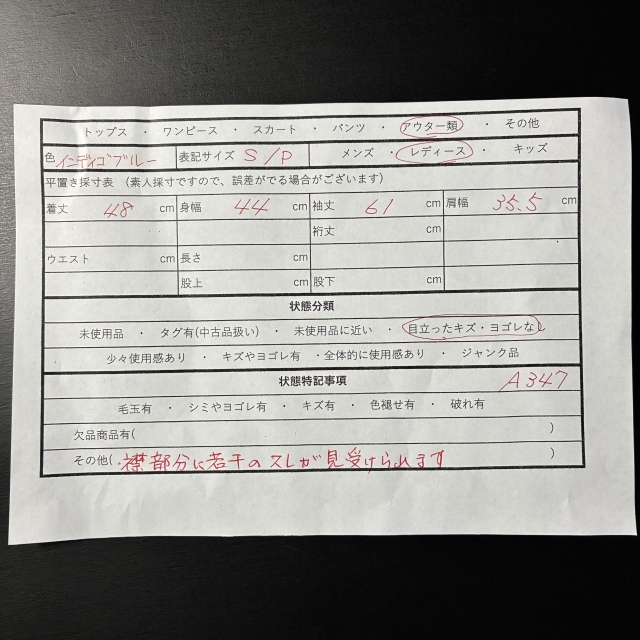 トップス ・ ワンピース ・ スカート ・ パンツ ・ アウター類 ・ その他
色 インディゴブルー 表記サイズ S/P メンズ ・ レディース ・ キッズ
平置き採寸表 (素人採寸ですので、誤差がでる場合がございます)
着丈 48 cm 身幅 44 cm 袖丈 61 cm 肩幅 35.5 cm
裄丈 cm
ウエスト cm 長さ cm
股上 cm 股下 cm
状態分類
未使用品 ・ タグ有(中古品扱い) ・ 未使用品に近い ・ 目立ったキズ・ヨゴレなし
少々使用感あり ・ キズやヨゴレ有 ・全体的に使用感あり ・ ジャンク品
状態特記事項 A347
毛玉有 ・ シミやヨゴレ有 ・ キズ有 ・ 色褪せ有 ・ 破れ有
欠品商品有( )
その他( 襟部分に若干のスレが見受けられます )